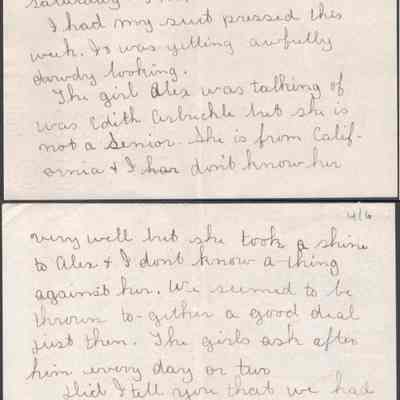 saturday
I had my suit pressed this
week. It was getting awfully
dowdy looking.
The girl Alex was talking of
was Edith Arbuckle but she is
not a Senior. She is from Calif-
ornia & I har don't know her
4/6
very well but she took a shine
to Alex & I dont know a-thing
against her. We seemed to be
thrown to-gether a good deal
just then. The girls ask after
him every day or two
Did I tell you that we had